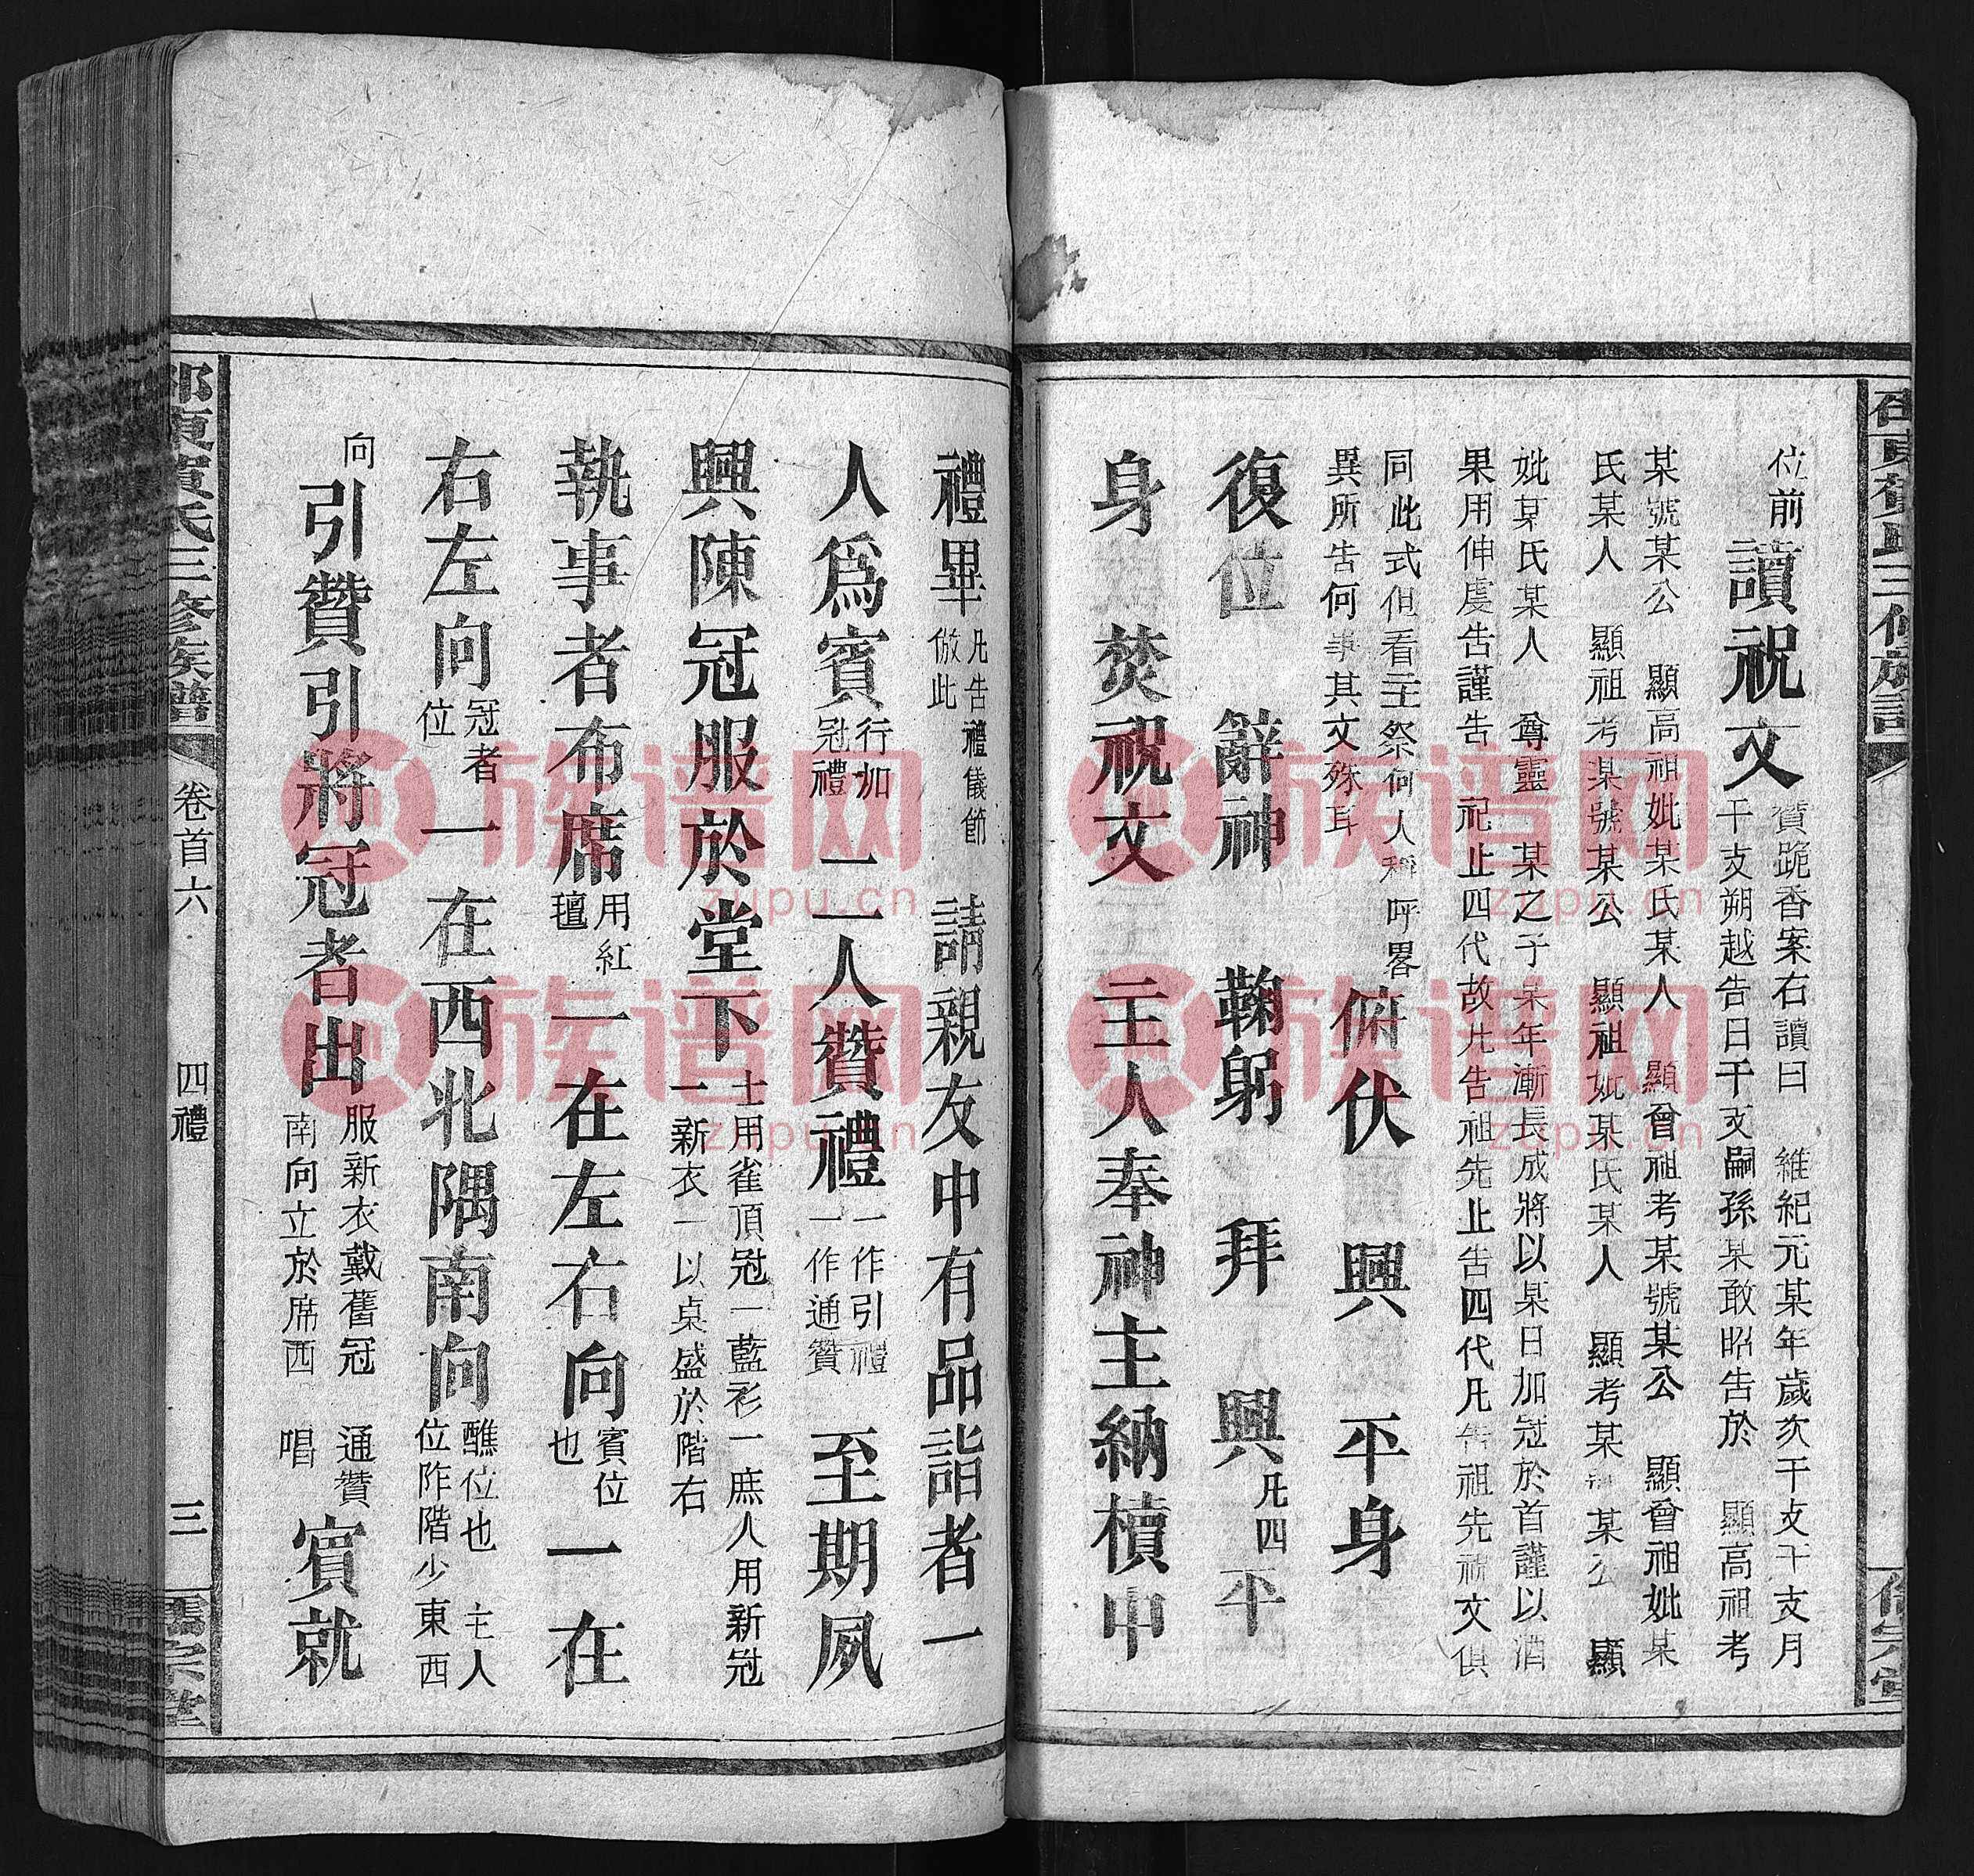 位前讀祝文贊跪香案右讀曰 維紀元某年歲次干支干支月
干支朔越告日干支嗣孫某敢昭告於 顯高祖考
某號某公 顯高祖妣某氏某人 顯曾祖考某號某公 顯曾祖妣某
氏某人 顯祖考某號某公 顯祖妣某氏某人 顯考某號某公 顯
妣某氏某人 尊靈 某之子某年漸長成將以某日加冠於首謹以酒
果用伸虔告謹告 祀止四代故凡告祖先止告四代凡告祖先祝文俱
同此式但看主祭何人稱呼畧
異所告何事其文殊耳 俯伏 興 平身
復位 辭神 鞠躬 拜 興凡四平
身 焚祝文 主人奉神主納櫝中
禮畢凡告禮儀節倣此 請親友中有品詣者一
人爲賓行加冠禮 二人贊禮一作引禮一作通贊 至期夙
興陳冠服於堂下士用雀頂冠一藍衫一庶人用新冠
一新衣一以桌盛於階右
執事者布席用紅氊一在左右向賓位也一在
右左向冠者位 一在西北隅南向醮位也 主人
位阼階少東西
向引贊引將冠者出服新衣戴舊冠 通贊
南向立於席西 唱 賓就
卷首六
四禮
三
族谱网
zupu.cn
族谱网
zupu.cn
族谱网
zupu.cn
族谱网
zupu.cn